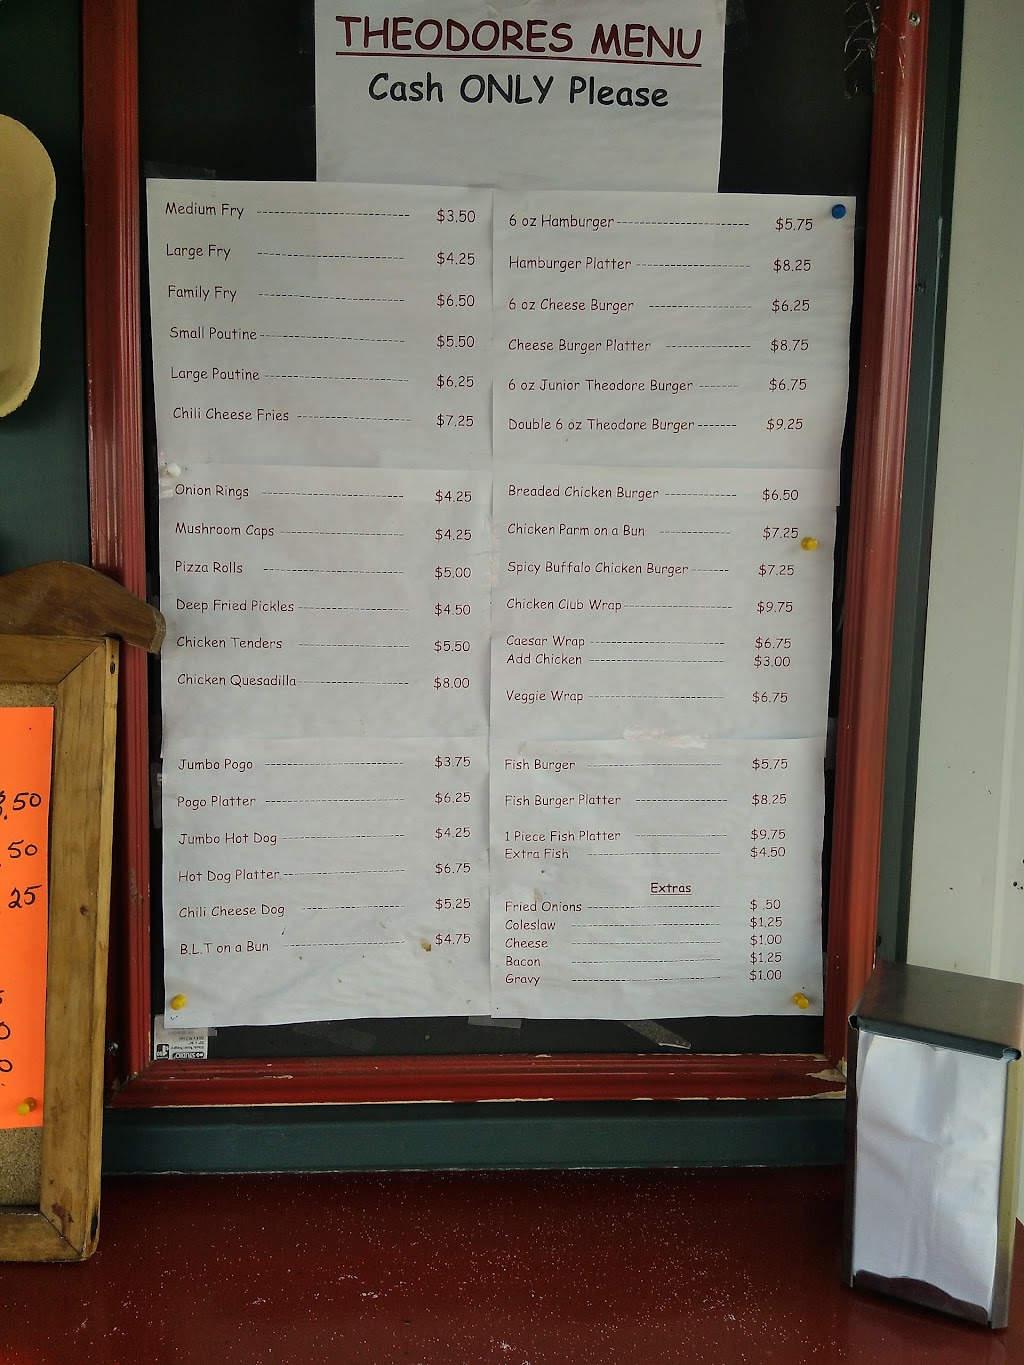 THEODORES MENU
Cash ONLY Please
Medium Fry ---------------------------- $3.50
Large Fry ---------------------------- $4.25
Family Fry ---------------------------- $6.50
Small Poutine ---------------------------- $5.50
Large Poutine ---------------------------- $6.25
Chili Cheese Fries --------------------- $7.25
Onion Rings ---------------------------- $4.25
Mushroom Caps ------------------------ $4.25
Pizza Rolls ---------------------------- $5.00
Deep Fried Pickles --------------------- $4.50
Chicken Tenders ----------------------- $5.50
Chicken Quesadilla--------------------- $8.00
Jumbo Pogo --------------------------- $3.75
Pogo Platter --------------------------- $6.25
Jumbo Hot Dog ------------------------ $4.25
Hot Dog Platter ------------------------ $6.75
Chili Cheese Dog --------------------- $5.25
B.L.T on a Bun ------------------------ $4.75
6 oz Hamburger------------------------- $5.75
Hamburger Platter --------------------- $8.25
6 oz Cheese Burger -------------------- $6.25
Cheese Burger Platter ---------------- $8.75
6 oz Junior Theodore Burger ------- $6.75
Double 6 oz Theodore Burger ------- $9.25
Breaded Chicken Burger ------------- $6.50
Chicken Parm on a Bun ------------- $7.25
Spicy Buffalo Chicken Burger ------- $7.25
Chicken Club Wrap-------------------- $9.75
Caesar Wrap --------------------------- $6.75
Add Chicken --------------------------- $3.00
Veggie Wrap --------------------------- $6.75
Fish Burger --------------------------- $5.75
Fish Burger Platter ------------------ $8.25
1 Piece Fish Platter ------------------ $9.75
Extra Fish --------------------------- $4.50
Extras
Fried Onions --------------------------- $ .50
Coleslaw ------------------------------ $1.25
Cheese ------------------------------ $1.00
Bacon ------------------------------ $1.25
Gravy ------------------------------ $1.00
.50
50
.25
STUDIO